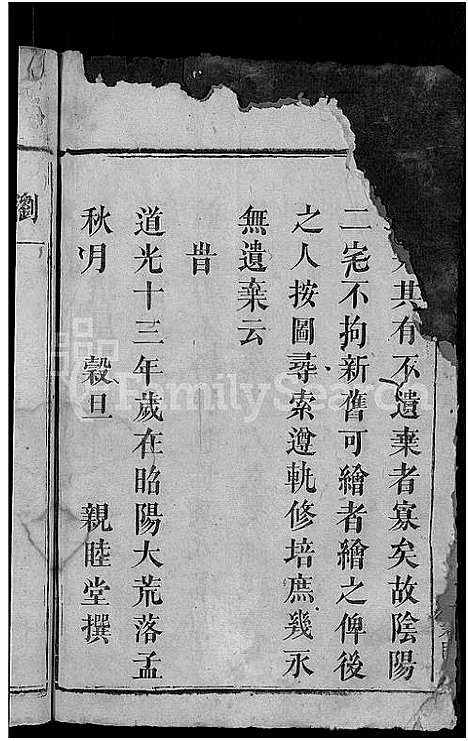 其有不遺棄者寡矣故陰陽
二宅不拘新舊可繪者繪之俾後
之人按圖尋索遵軌修培庶幾永
無遺棄云
昔
道光十三年歲在昭陽大荒落孟
秋月 穀旦 親睦堂撰
劉
FamilySearch